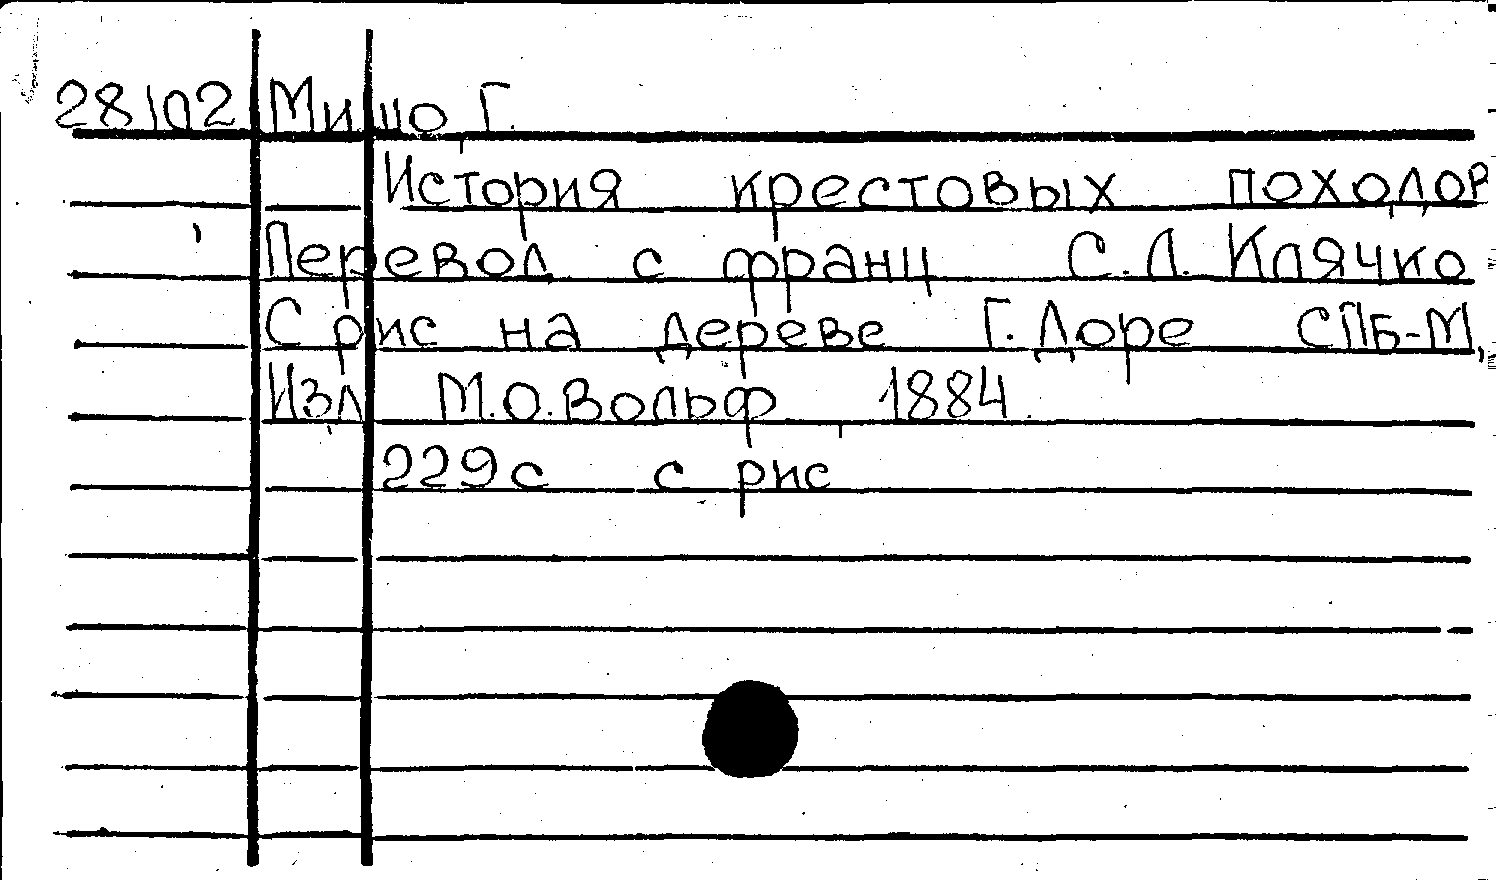 28102 Мишо, Г.
История крестовых походов
Перевод с франц С.Л. Клячко
С рис на дереве Г. Доре СПБ-М,
Изд М.О. Вольф, 1884.
229с с рис